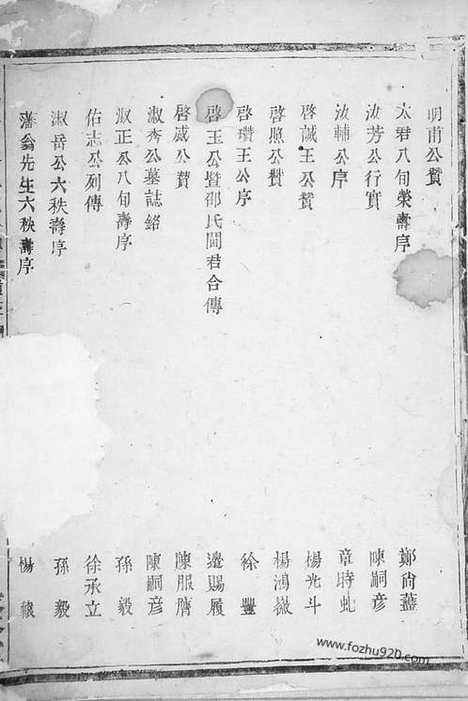 明甫公贊 鄭尚藎
太君八旬榮壽序
汝芳公行實 陳嗣彦
汝輔公序 章時虬
啓誠王公贊 楊光斗
啓照公贊 楊鴻薇
啓瓚王公序 徐豐
啓玉公暨邵氏閫君合傳 邊賜履
啓威公贊 陳服膺
淑秀公墓誌銘 陳嗣彦
淑正公八旬壽序 孫毅
佑志公列傳 徐承立
淑岳公六秩壽序 孫毅
藩翁先生六秩壽序 楊
www.fozhu920.com